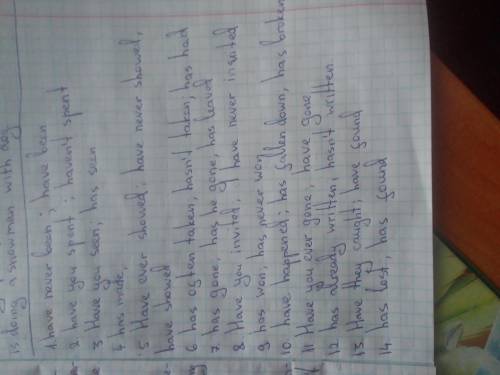 is doing a snowman with dog
1 have never been; have been
2 have you spent; haven't spent
3 Have you seen, has seen
4 has made,
5 Have ever showed; have never showed,
have showed
6 has often taken, hasn't taken; has had
7 has gone, has he gone, has leaved
8. Have you invited, I have never invited
9 has won, has never won
10. have happened; has fallen down, has broken
11 Have you ever gone, have gone
12 has already written, hasn't written
13. Have they caught; have found
14. has lost, has found